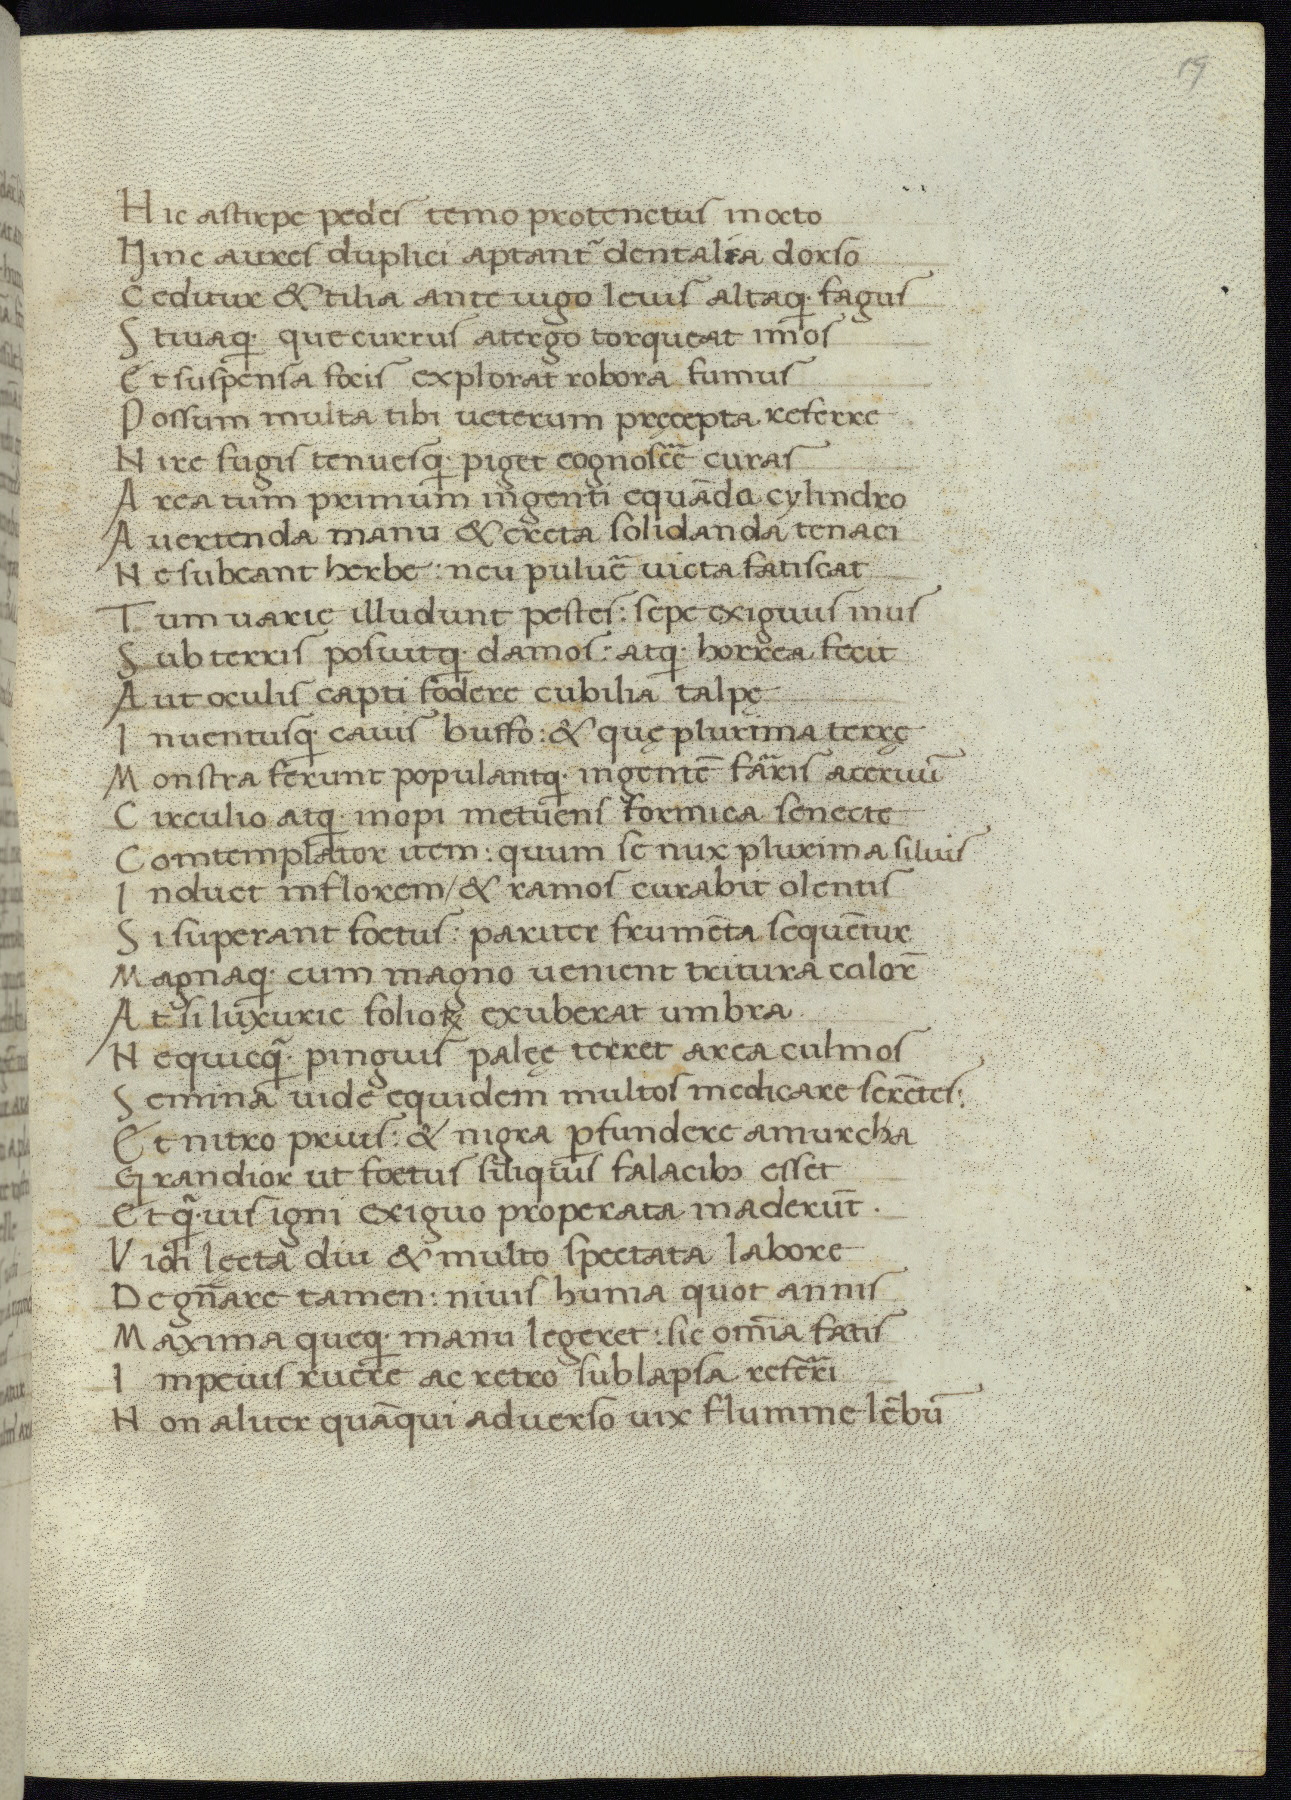 19
Hic astirpe pedes temo protenctus inocto
Hinc aures duplici aptant᷑ dentalia dorso
Ceditur & tilia ante iugo leuis altaq; fagus
Stiuaq; que currus atergo torqueat imos
Et suspensa focis explorat robora fumus
Possum multa tibi ueterum pręcepta referre
Nire fugis tenuesq; piget cognosc̃e curas
Area tum primum ingenti equãda cylindro
Auertenda manu & creta solidanda tenaci
Ne subeant herbe: neu puluẽ uicta fatiscat
Tum uarie illudunt pestes: sepe exiguus mus
Sub terris posuitq; damos: atq; horrea fecit
Aut oculis capti fodere cubilia talpę
Inuentusq; cauis buffo: & quę plurima terrę
Monstra ferunt populantq; ingentẽ farris aceruũ
Circulio atq; inopi metuens formica senecte
Comtemplator item: quum se nux plurima siluis
Induet inflorem/ & ramos curabit olentis
Si superant foetus: pariter frumẽta sequẽtur
Magnaq; cum magno uenient tritura calor̃
At si luxurie folioꝝ exuberat umbra
Nequicq̃; pinguis palęę terret area culmos
Semina uide equidem multos medicare serẽtes:
Et nitro prius: & nigra ꝑfundere amurcha
Grandior ut foetus siliquis falacibꝫ esset
Et q̃;uis igni exiguo properata maderũt.
Vidi lecta diu & multo spectata labore
Degñare tamen: niuis huma quot annis
Maxima queq; manu legeret: sic om̃ia fatis
Inpeius ruere ac retro sublapsa referri
Non aliter quãqui aduerso uix flumine lẽbũ